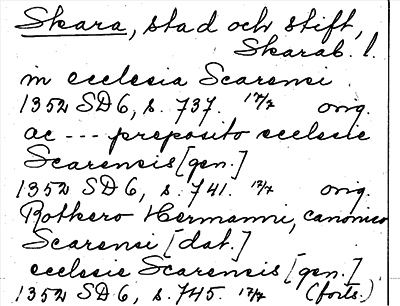 Skara, stad och stift,
Skarab. l.
in ecclesia Scarensi.
1352 SD 6, s. 737. 17/7 orig.
ac --- preposito ecclesie
Scarensis [gen.]
1352 SD 6, s. 741. 17/7 orig.
Rotkero Hermanni, canonico
Scarensi [dat.]
ecclesie Scarensis [gen.]
1352 SD 6, s. 745. 17/7 (forts.)